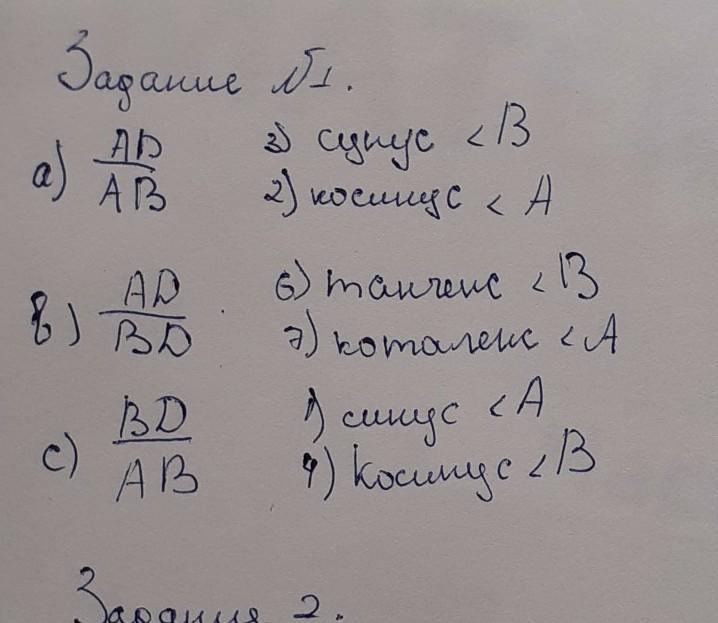 Задание №1.
а) AD/AB 3) синус <B
2) косинус <A
в) AD/BD 6) тангенс <B
7) котангенс <A
с) BD/AB 1) синус <A
4) косинус <B
Задания 2.